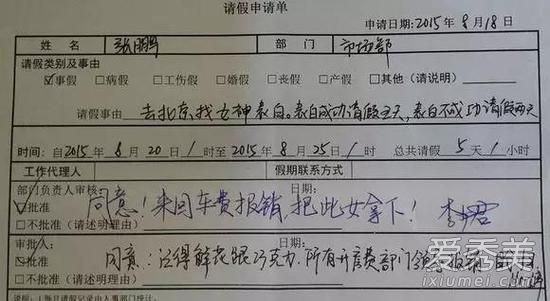 请假申请单
申请日期:2015年8月18日
姓名 张鹏 部门 市场部
请假类别及事由
☑事假 □病假 □工伤假 □婚假 □丧假 □产假 □其他(请说明)
请假事由 去北京找女神表白。表白成功请假五天,表白不成功请假两天
时间:自2015年8月20日1时至2015年8月25日1时 总共请假5天1小时
工作代理人 假期联系方式
部门负责人审核: 日期:
☑批准
□不批准(请述明理由)
同意!来回车费报销,把此女拿下! 李君
审批人: 日期:
☑批准
□不批准(请述明理由)
同意:记得鲜花跟巧克力.所有开房费部门领导报销
爱秀美